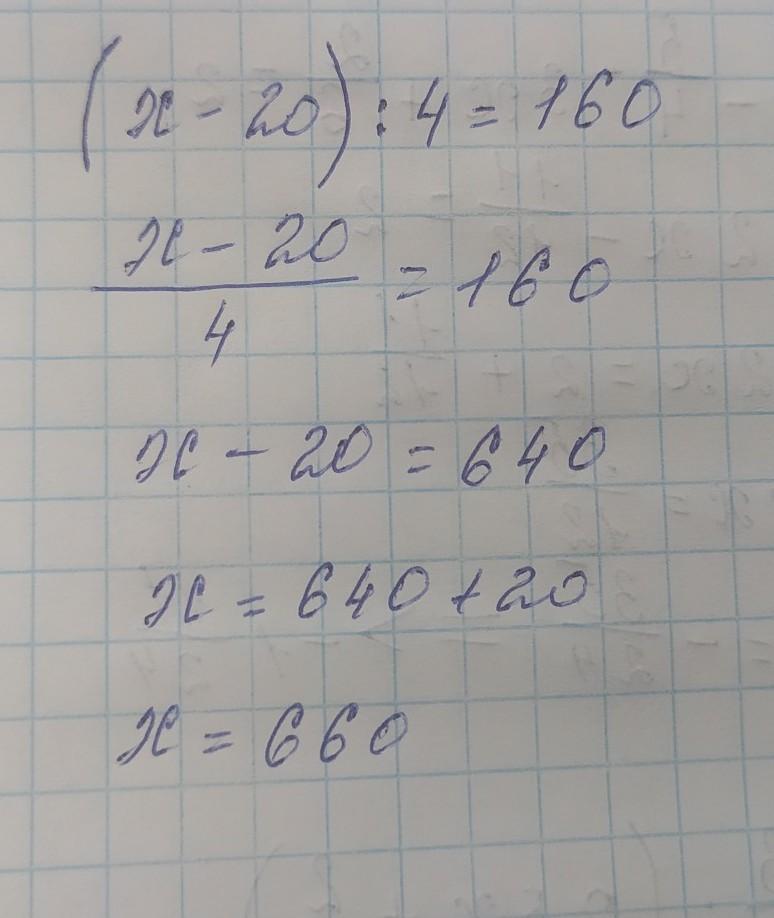 (x - 20) : 4 = 160
x - 20
4
= 160
x - 20 = 640
x = 640 + 20
x = 660